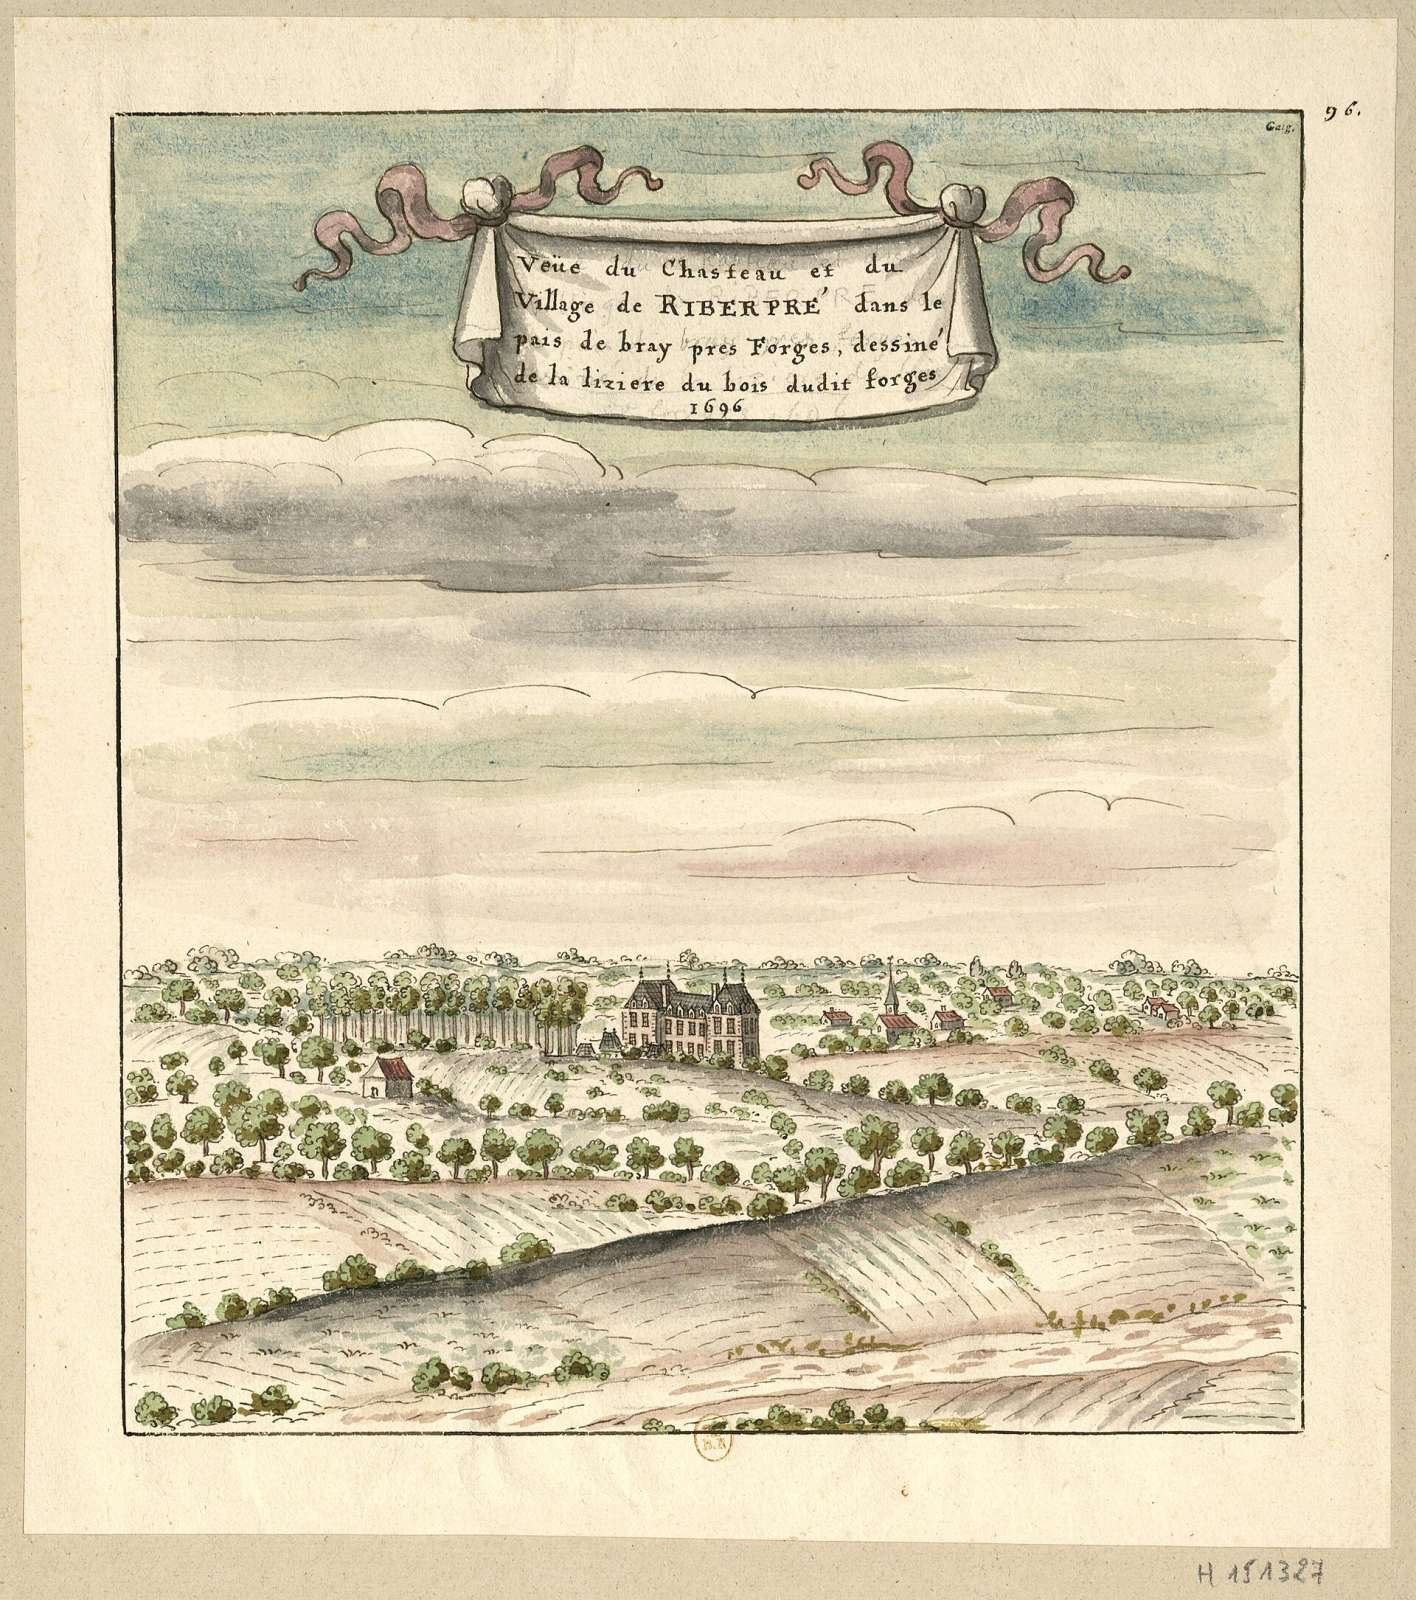 96.
Gaig.
Veüe du Chasteau et du
Village de RIBERPRÉ dans le
pais de bray pres Forges, dessiné
de la liziere du bois dudit forges
1696
H 191327